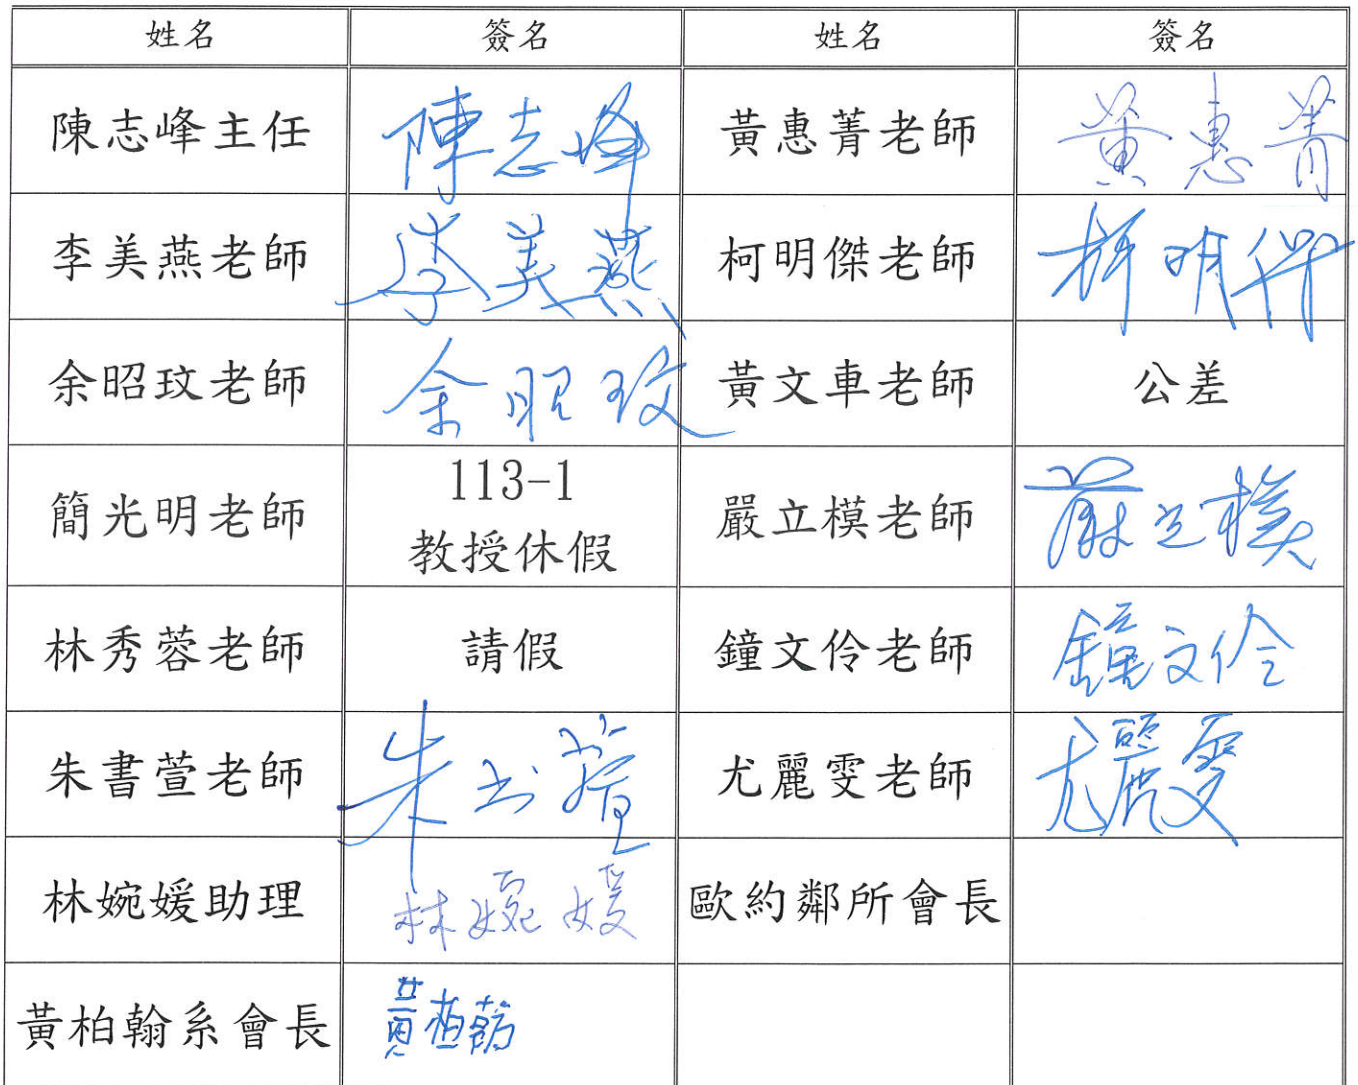 姓名 簽名 姓名 簽名
陳志峰主任 陳志峰 黃惠菁老師 黃惠菁
李美燕老師 李美燕 柯明傑老師 柯明傑
余昭玟老師 余昭玟 黃文車老師 公差
簡光明老師 113-1 教授休假 嚴立模老師 嚴立模
林秀蓉老師 請假 鐘文伶老師 鐘文伶
朱書萱老師 朱书萱 尤麗雯老師 尤麗雯
林婉媛助理 林婉媛 歐約鄰所會長
黃柏翰系會長 黃柏翰